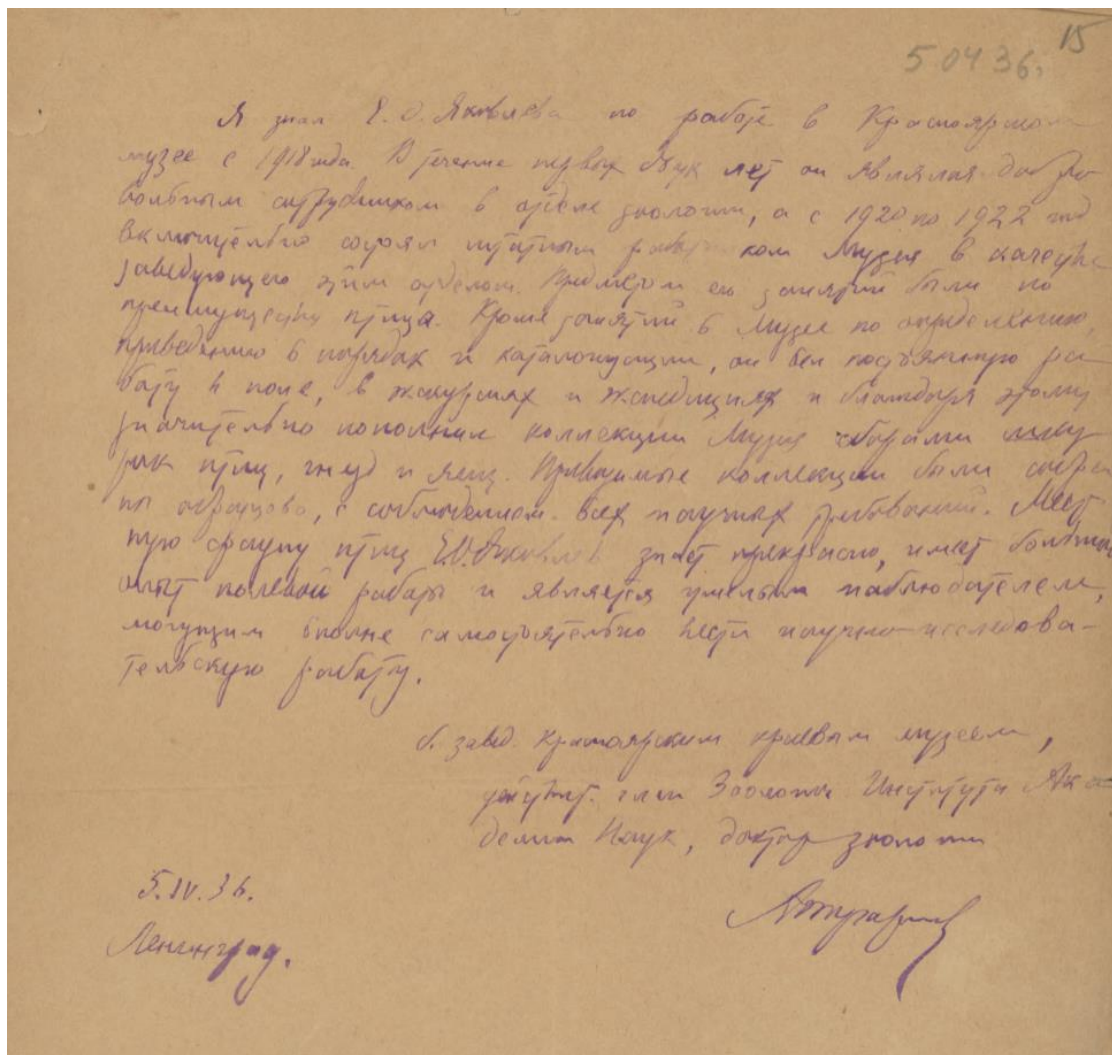 15
5 04 36.
Я знал Е.О. Яковлева по работе в Красноярском
музее с 1918 года. В течение первых двух лет он являлся добро
вольным сотрудником в отделе зоологии, а с 1920 по 1922 год
включительно состоял штатным работником Музея в качестве
заведующего этим отделом. Предметом его занятий были по
преимуществу птицы. Кроме занятий в Музее по определению,
приведению в порядок и каталогизации, он вел постоянную ра
боту в поле, в экскурсиях и экспедициях и благодаря этому
значительно пополнил коллекции Музея сборами шку
рок птиц, гнезд и яиц. Привозимые коллекции были собра
ны образцово, с соблюдением всех научных требований. Мест
ную фауну птиц Е.О. Яковлев знает прекрасно, имеет большой
опыт полевой работы и является умелым наблюдателем,
могущим вполне самостоятельно вести научно-исследова-
тельскую работу.
б. завед. Красноярским краевым музеем,
член Зоологич. Института Ака-
демии Наук, доктор зоологии
5.IV.36.
Ленинград.